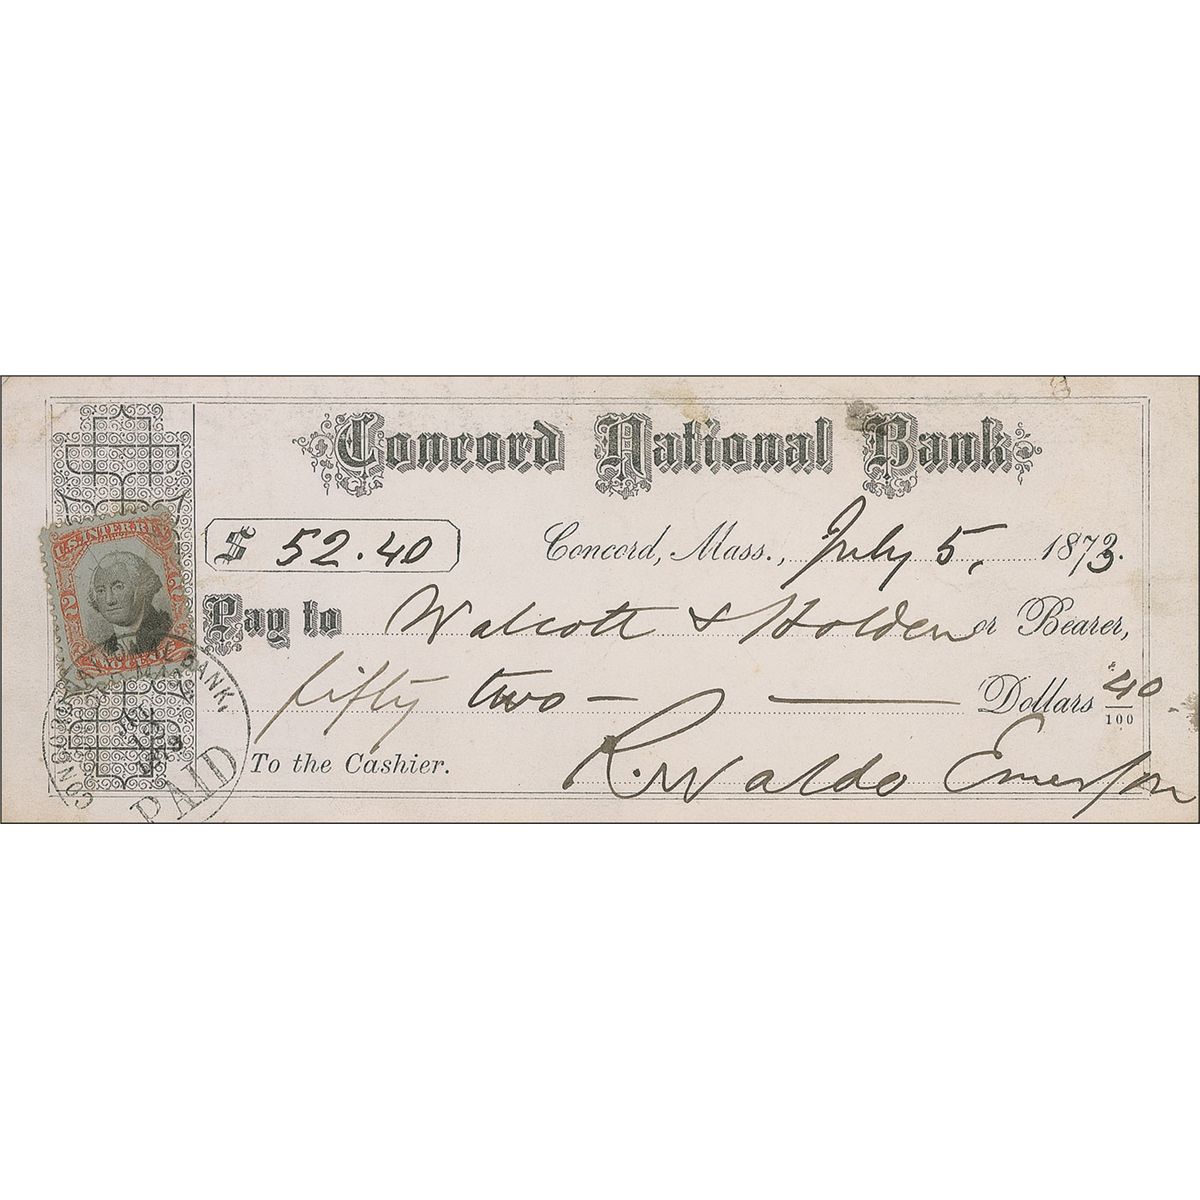 Concord National Bank
$ 52.40 Concord, Mass., July 5, 1873.
Pay to Walcott & Holden or Bearer,
fifty two — — Dollars 40/100
To the Cashier. R. Waldo Emerson
2 2
TWO CENTS
CONCORD NATIONAL BANK,
PAID